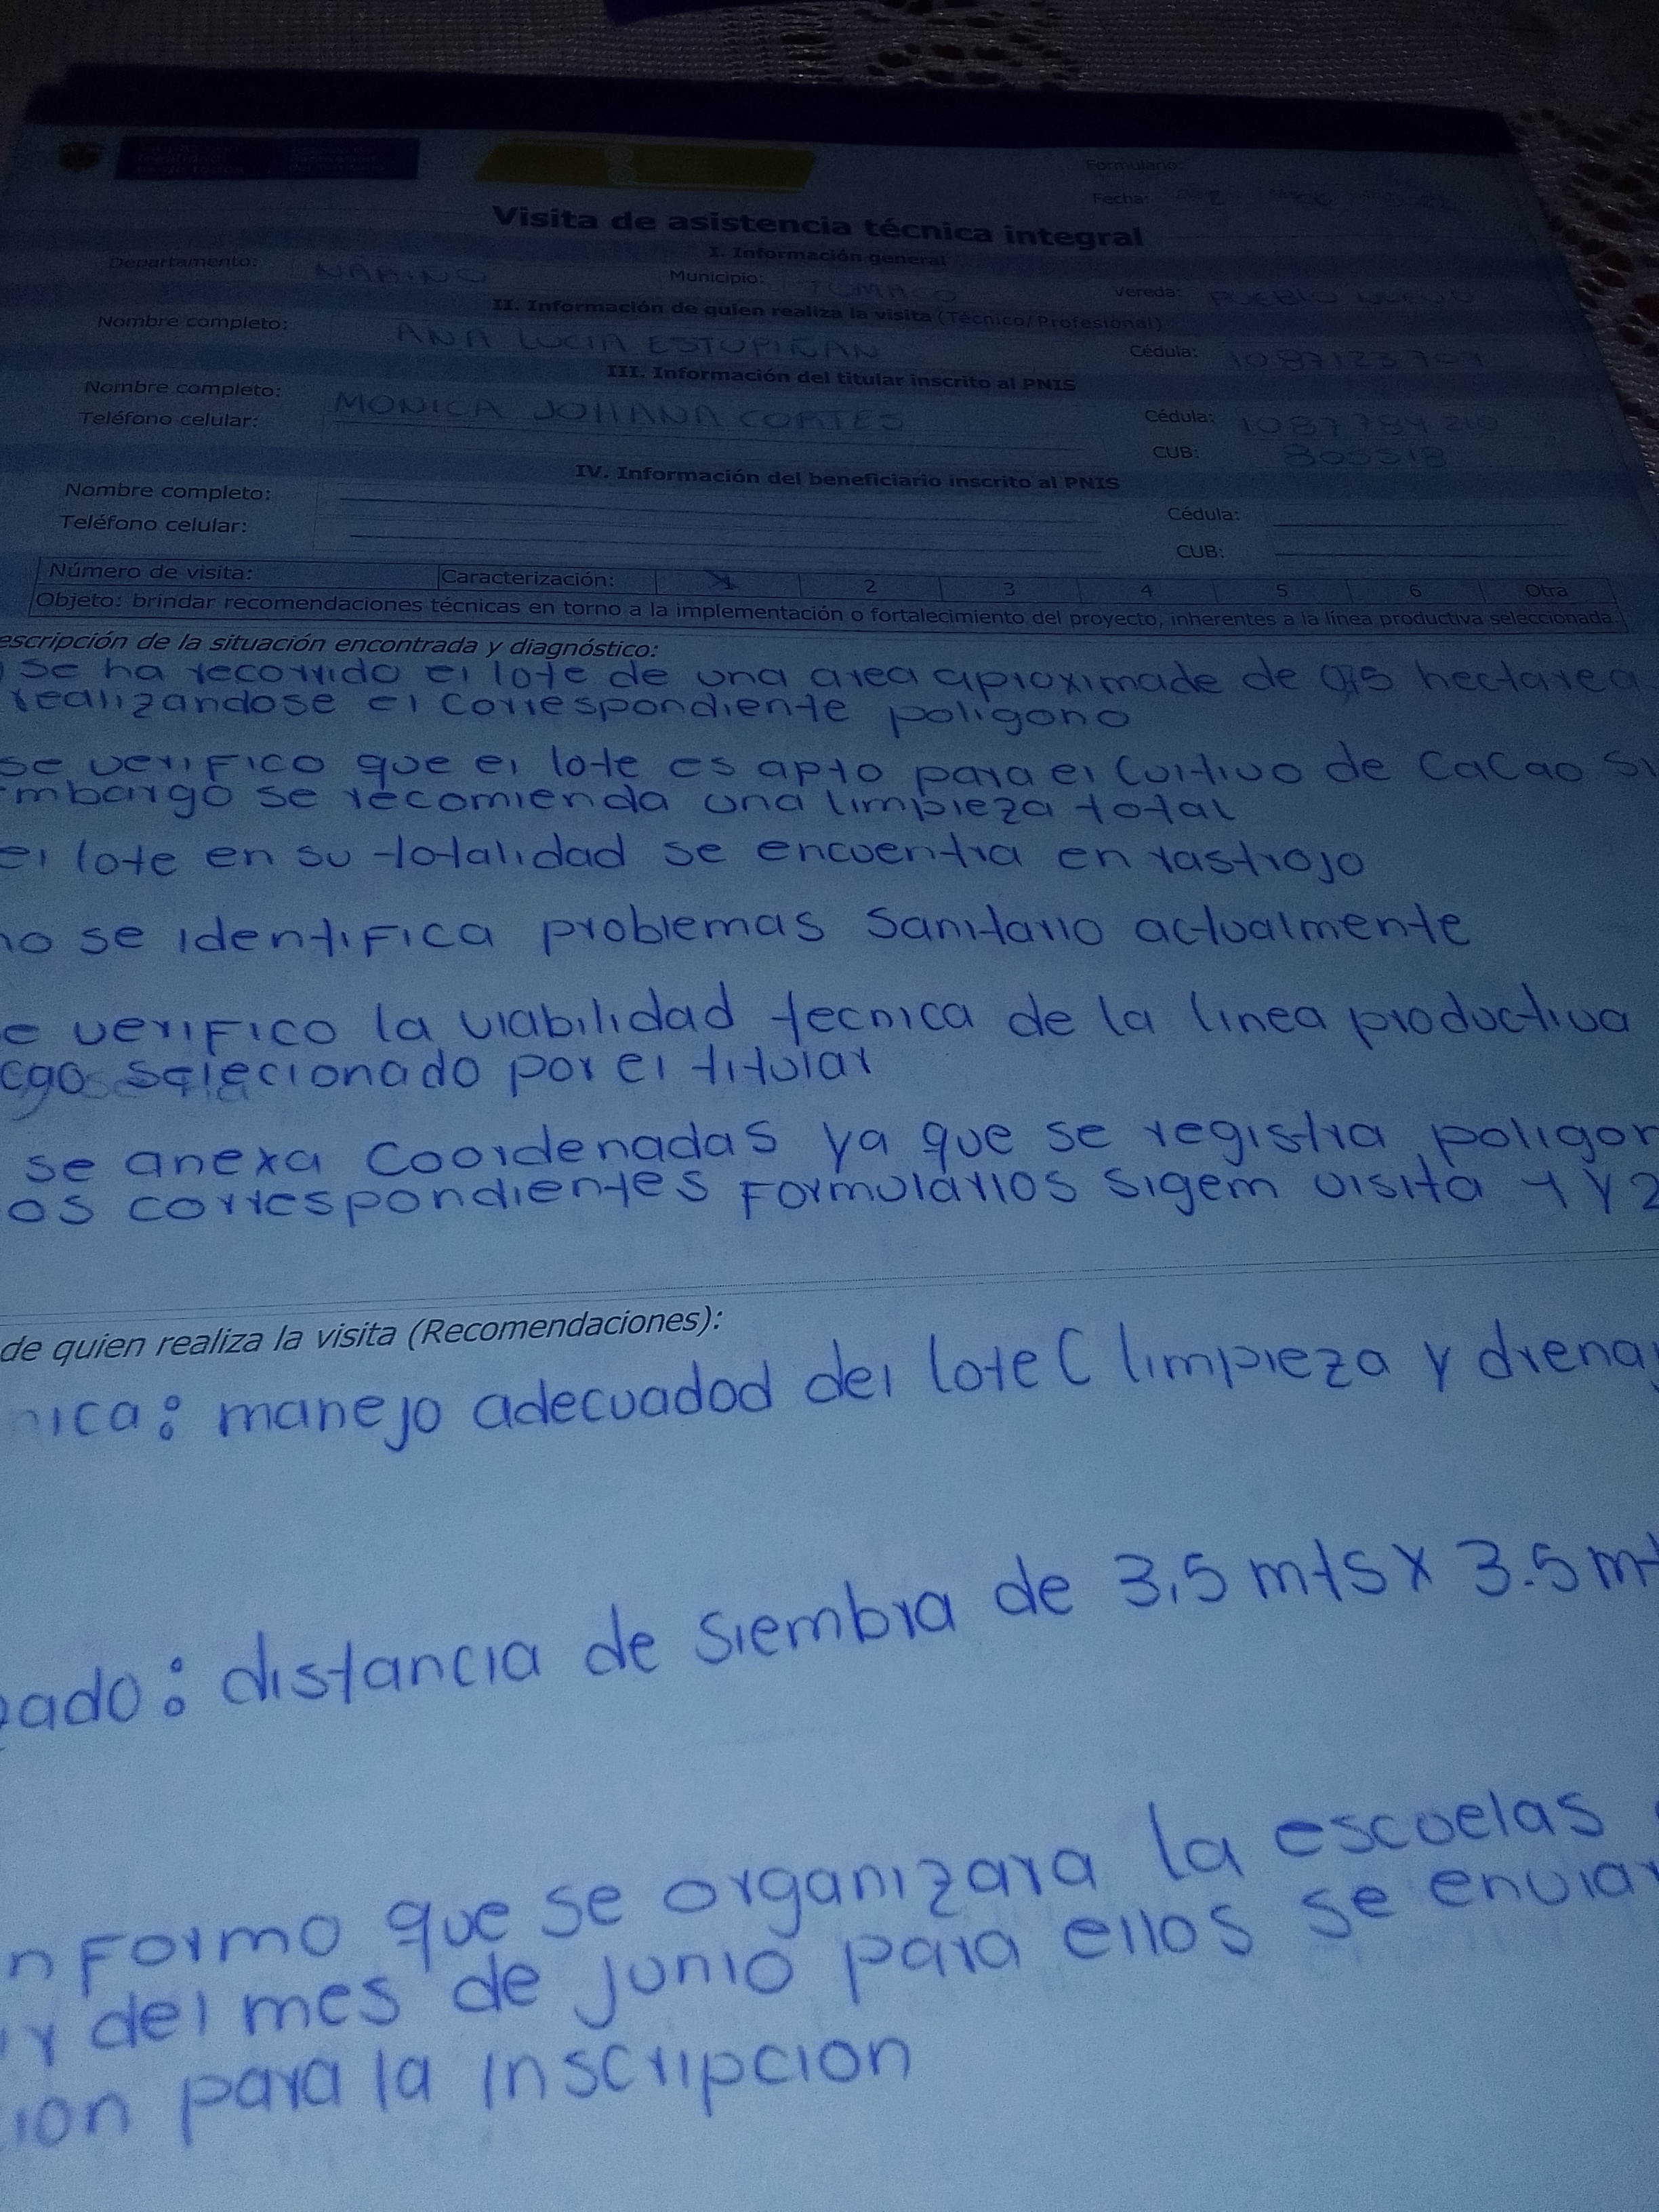 Formulario:
Fecha:
Visita de asistencia técnica integral
I. Información general
Departamento: NARIÑO Municipio: TUMACO Vereda: PUEBLO NUEVO
II. Información de quien realiza la visita (Técnico/Profesional)
Nombre completo: ANA LUCIA ESTUPIÑAN Cédula:
III. Información del titular inscrito al PNIS
Nombre completo: MONICA JOHANA CORTES Cédula: 1087784210
Teléfono celular: CUB:
IV. Información del beneficiario inscrito al PNIS
Nombre completo: Cédula:
Teléfono celular: CUB:
Número de visita: Caracterización: 1 2 3 4 5 6 Otra
Objeto: brindar recomendaciones técnicas en torno a la implementación o fortalecimiento del proyecto, inherentes a la línea productiva seleccionada.
escripción de la situación encontrada y diagnóstico:
se ha recorrido el lote de una area aproximade de hectarea
realizandose el correspondiente poligono
se verifico que el lote es apto para el cultivo de cacao si
mbargo se recomienda una limpieza total
el lote en su totalidad se encuentra en rastrojo
no se identifica problemas sanitario actualmente
e verifico la viabilidad tecnica de la linea productiva
cao selecionado por el titular
se anexa coordenadas ya que se registra poligon
os correspondientes formularios sigem visita 1 y 2
de quien realiza la visita (Recomendaciones):
nica: manejo adecuadod del lote ( limpieza y drenaj
ado: distancia de siembra de 3,5 mts x 3.5 mt
nformo que se organizara la escuelas
y del mes de junio para ellos se enviar
ion para la inscripcion